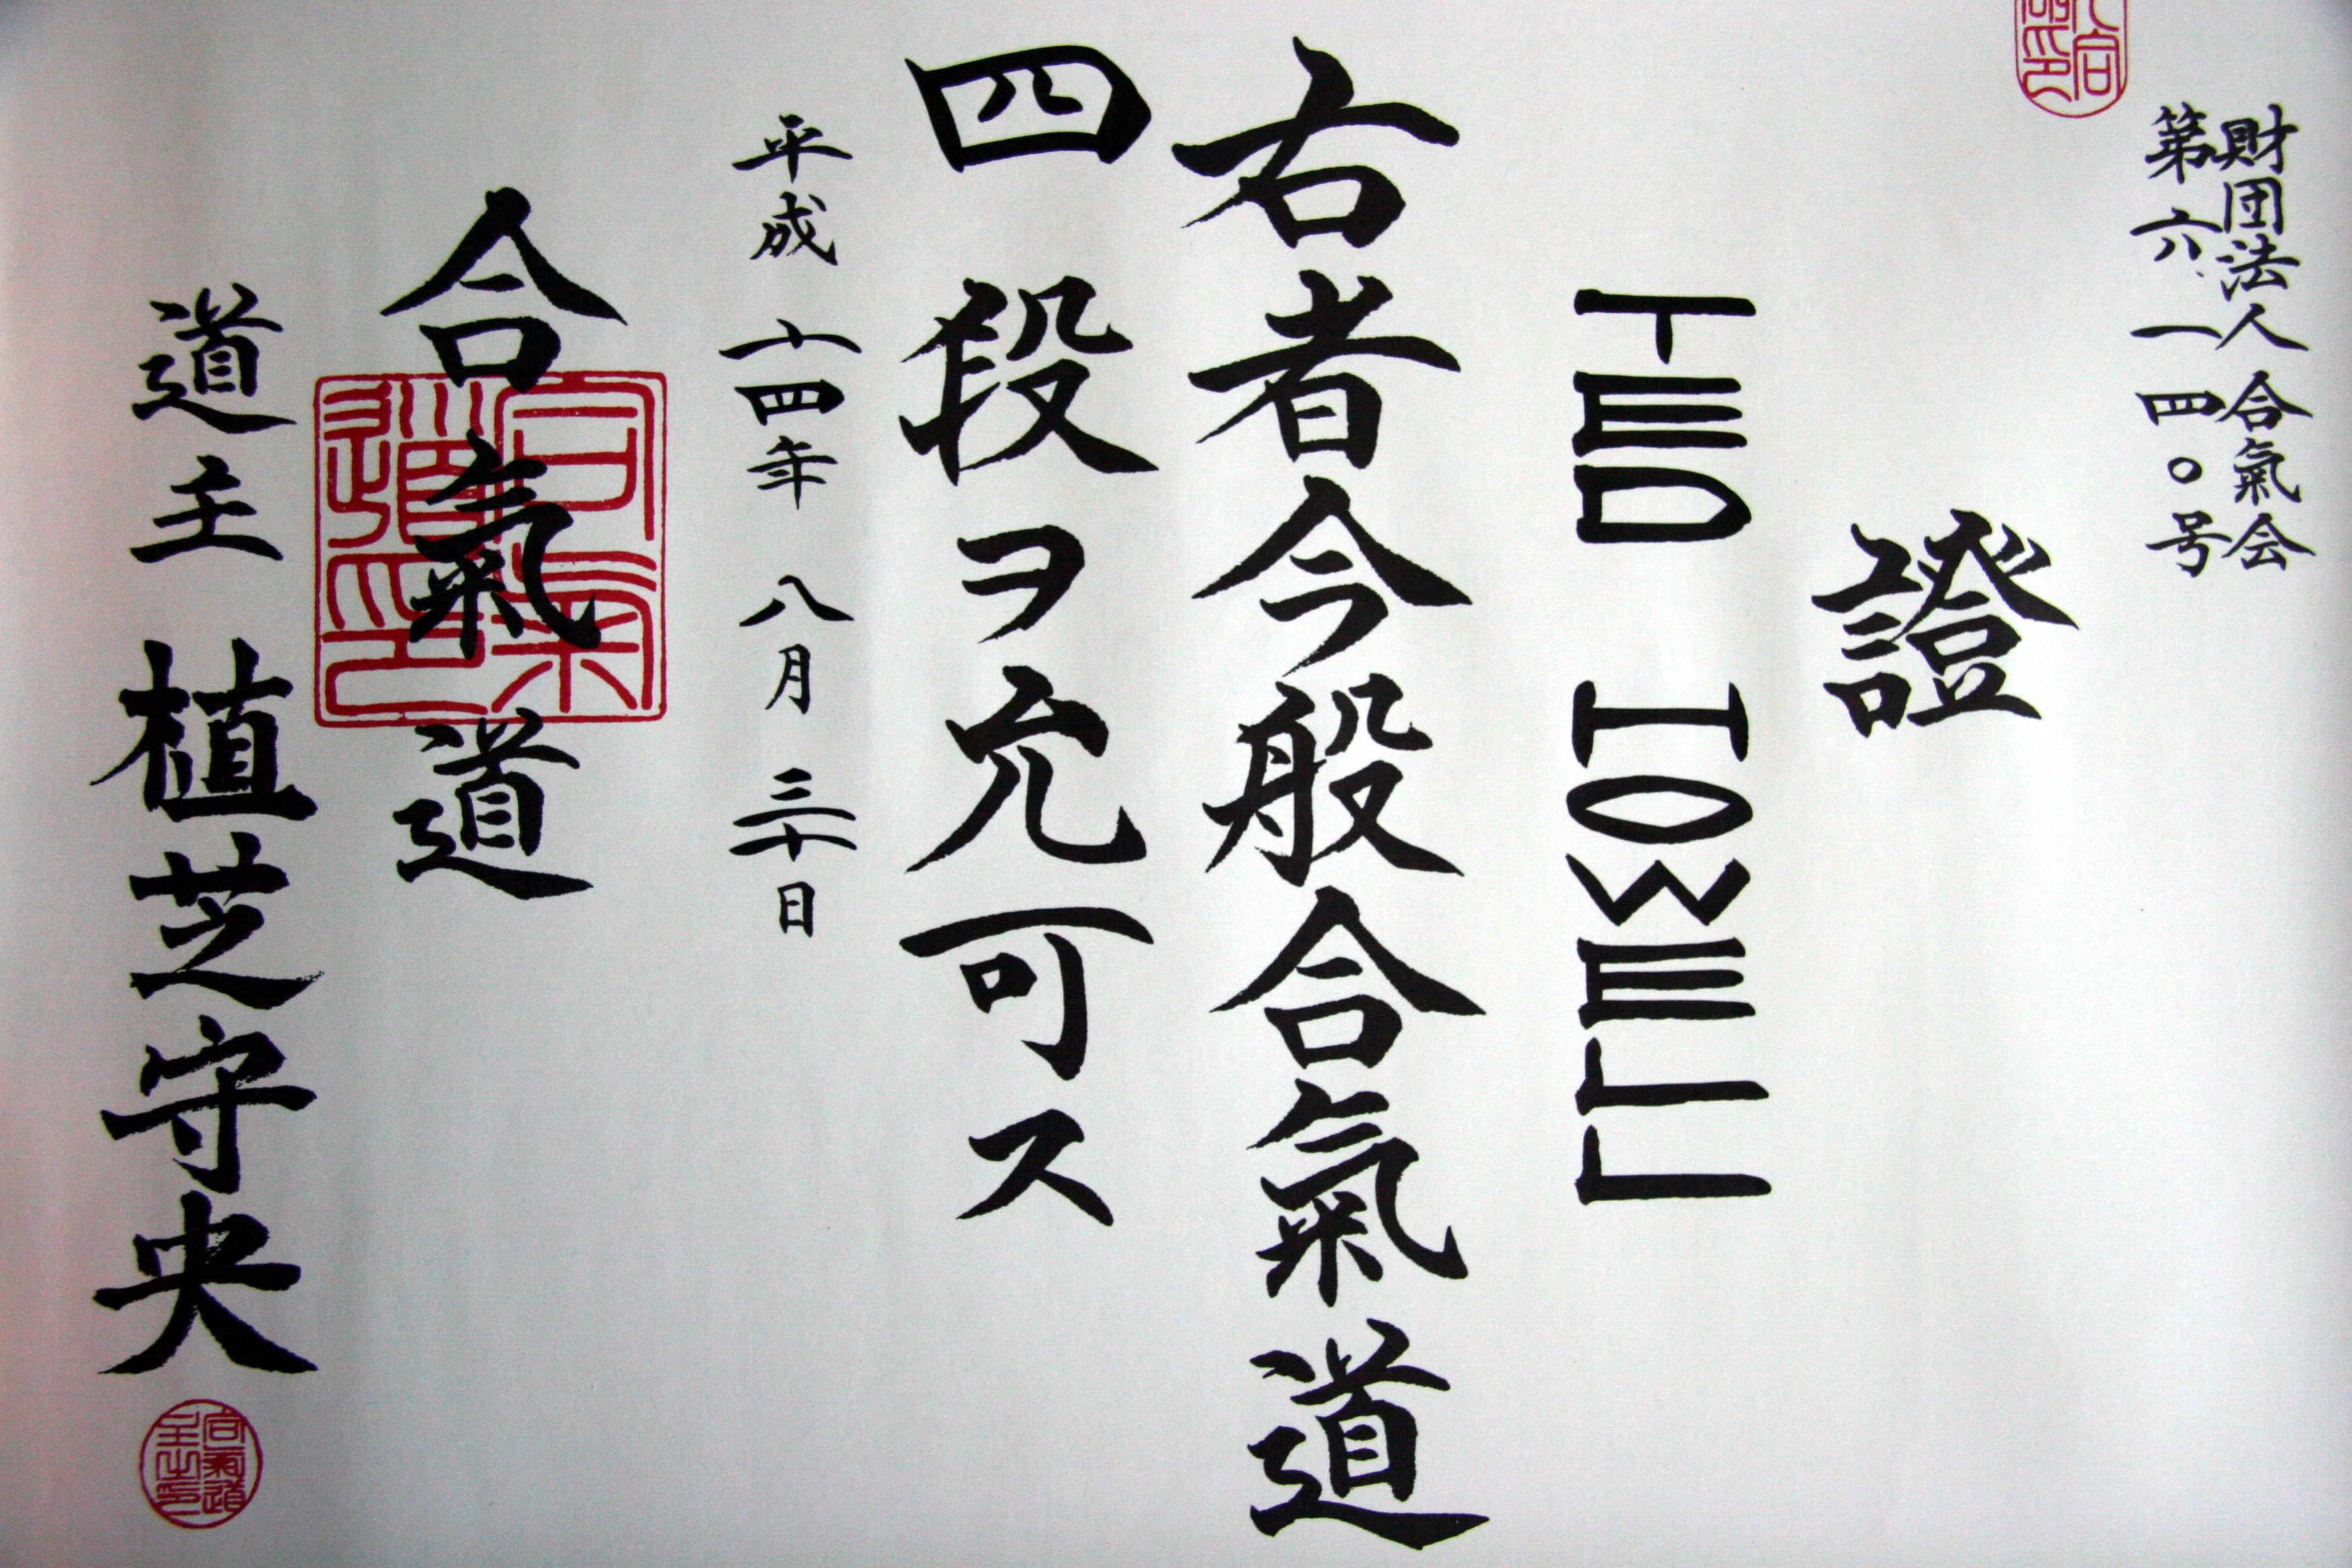 財団法人合氣会
第六一四〇号
證
TED HOWELL
右者今般合氣道
四段ヲ允可ス
平成十四年八月三十日
合氣道
合氣道印
道主 植芝守央
合氣道主之印